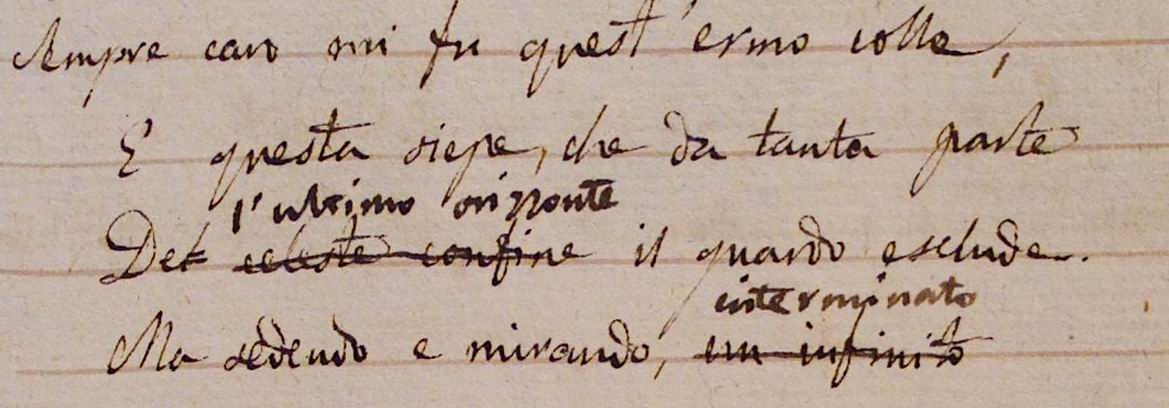 Sempre caro mi fu quest'ermo colle,
E questa siepe, che da tanta parte
l'ultimo orizzonte
Del celeste confine il guardo esclude.
interminato
Ma sedendo e mirando, un infinito